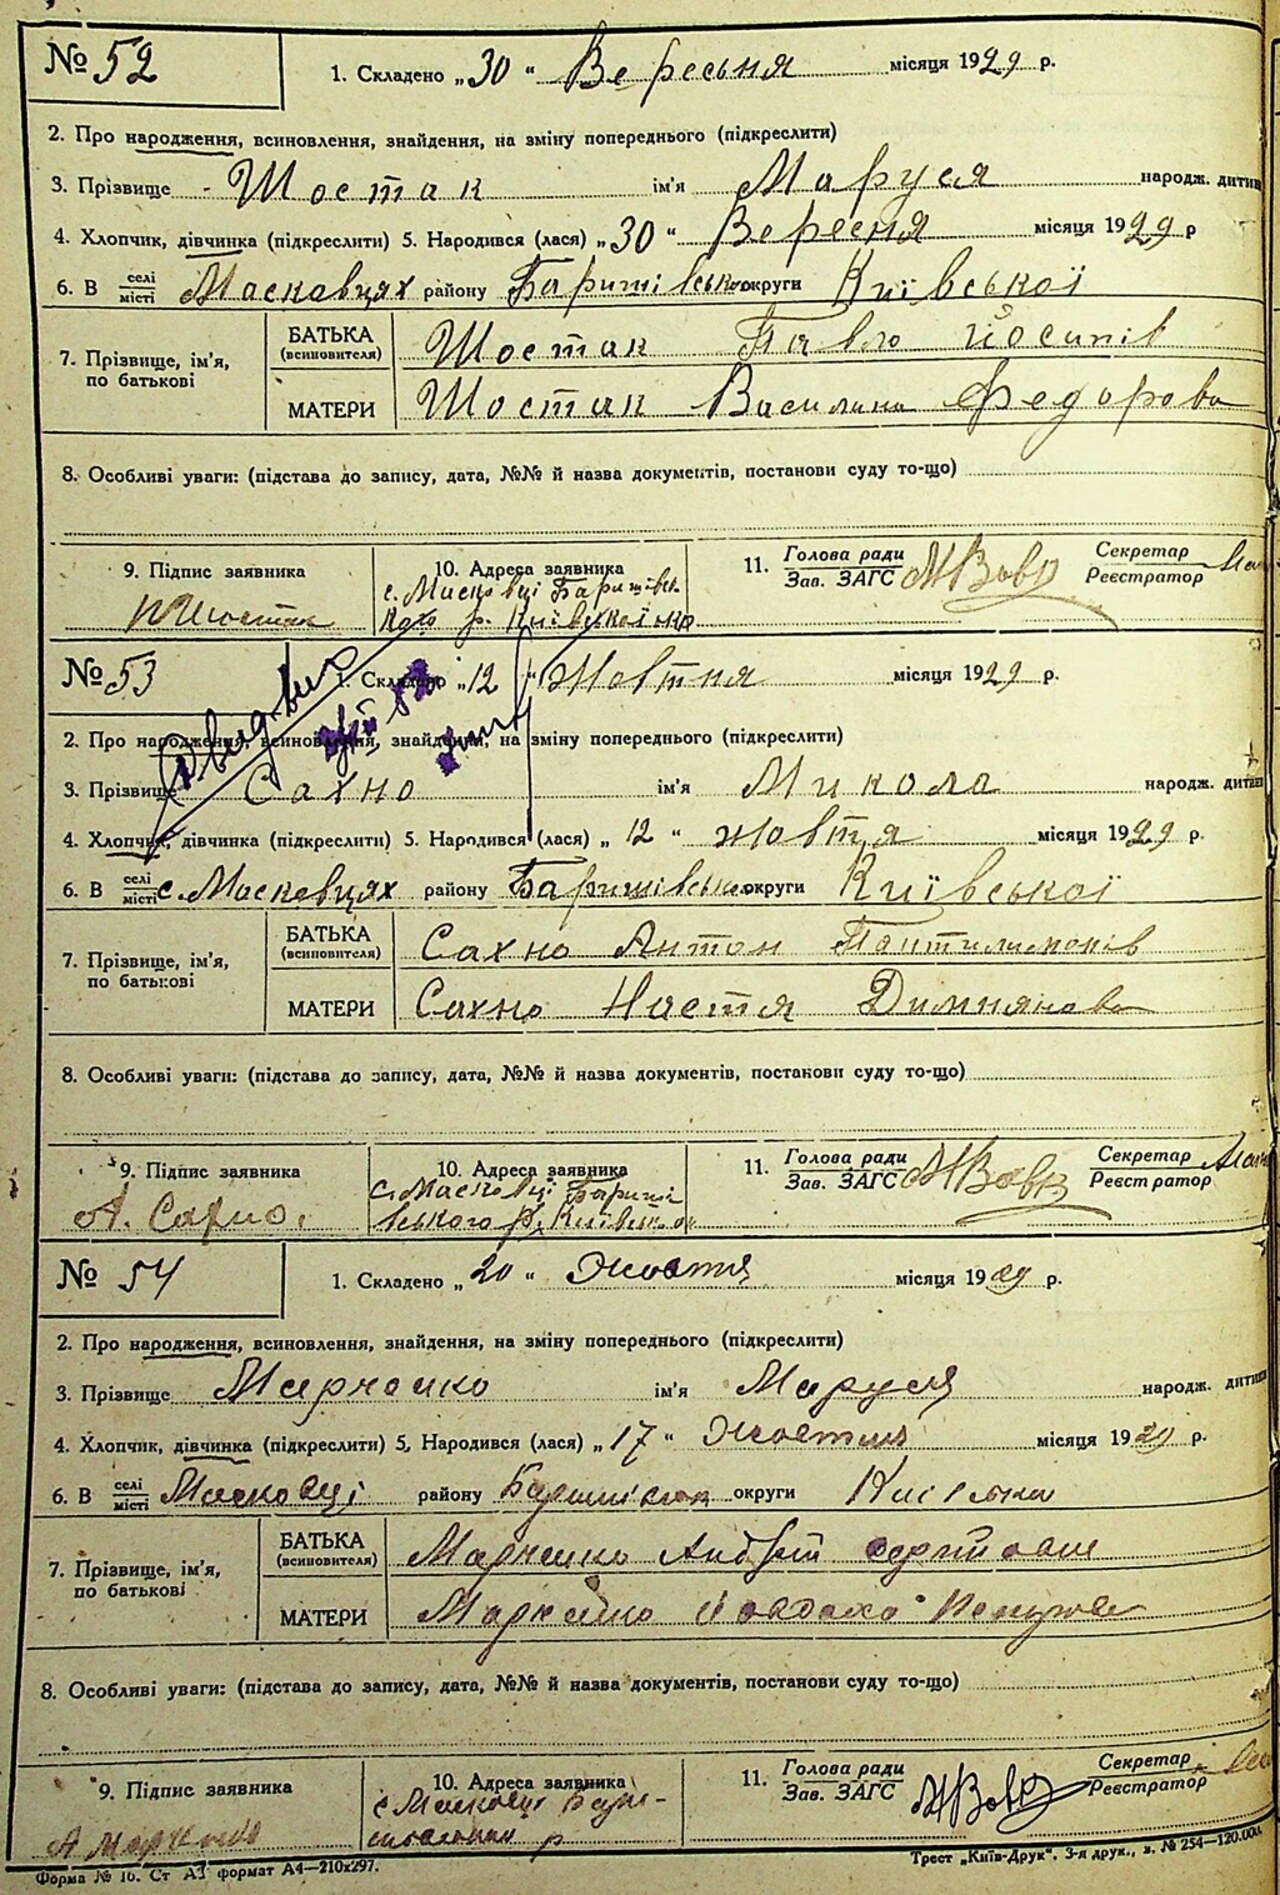 № 52
1. Складено „30“ Вересьня місяця 1929 р.
2. Про народження, всиновлення, знайдення, на зміну попереднього (підкреслити)
3. Прізвище Шостак ім'я Маруся народж. дитин
4. Хлопчик, дівчинка (підкреслити) 5. Народився (лася) „30“ Вересня місяця 1929 р
6. В селі місті Масковцях району Баришівсько округи Київської
7. Прізвище, ім'я, по батькові
БАТЬКА (всиновителя) Шостак Павло Йосипів
МАТЕРИ Шостак Василина Федорова
8. Особливі уваги: (підстава до запису, дата, №№ й назва документів, постанови суду то-що)
9. Підпис заявника
П Шостак
10. Адреса заявника
с. Масковці Баришівсь-
кого р. Київської окр
11. Голова ради Зав. ЗАГС МВовк Секретар Реєстратор
№ 53
1. Складено „12“ Жовтня місяця 1929 р.
2. Про народження, всиновлення, знайдення, на зміну попереднього (підкреслити)
3. Прізвище Сахно ім'я Микола народж. дитин
4. Хлопчик, дівчинка (підкреслити) 5. Народився (лася) „12“ жовтя місяця 1929 р.
6. В селі місті с. Масковцях району Баришівсько округи Київської
7. Прізвище, ім'я, по батькові
БАТЬКА (всиновителя) Сахно Антон Пантилимонів
МАТЕРИ Сахно Настя Димнянова
8. Особливі уваги: (підстава до запису, дата, №№ й назва документів, постанови суду то-що)
9. Підпис заявника
А. Сахно.
10. Адреса заявника
с. Масковці Бариші
вського р. Київської
11. Голова ради Зав. ЗАГС МВовк Секретар Реєстратор
№ 54
1. Складено „20“ Жовтня місяця 1929 р.
2. Про народження, всиновлення, знайдення, на зміну попереднього (підкреслити)
3. Прізвище Марченко ім'я Маруся народж. дитини
4. Хлопчик, дівчинка (підкреслити) 5. Народився (лася) „17“ Жовтня місяця 1929 р.
6. В селі місті Масковці району округи
7. Прізвище, ім'я, по батькові
БАТЬКА (всиновителя) Марченко Андрій
МАТЕРИ Марченко
8. Особливі уваги: (підстава до запису, дата, №№ й назва документів, постанови суду то-що)
9. Підпис заявника
А Марченко
10. Адреса заявника
с Масковці
р
11. Голова ради Зав. ЗАГС МВовк Секретар Реєстратор
Форма № 16. Ст А3 формат А4—210x297.
Трест „Київ-Друк“. 3-я друк., з. № 254—120.000.